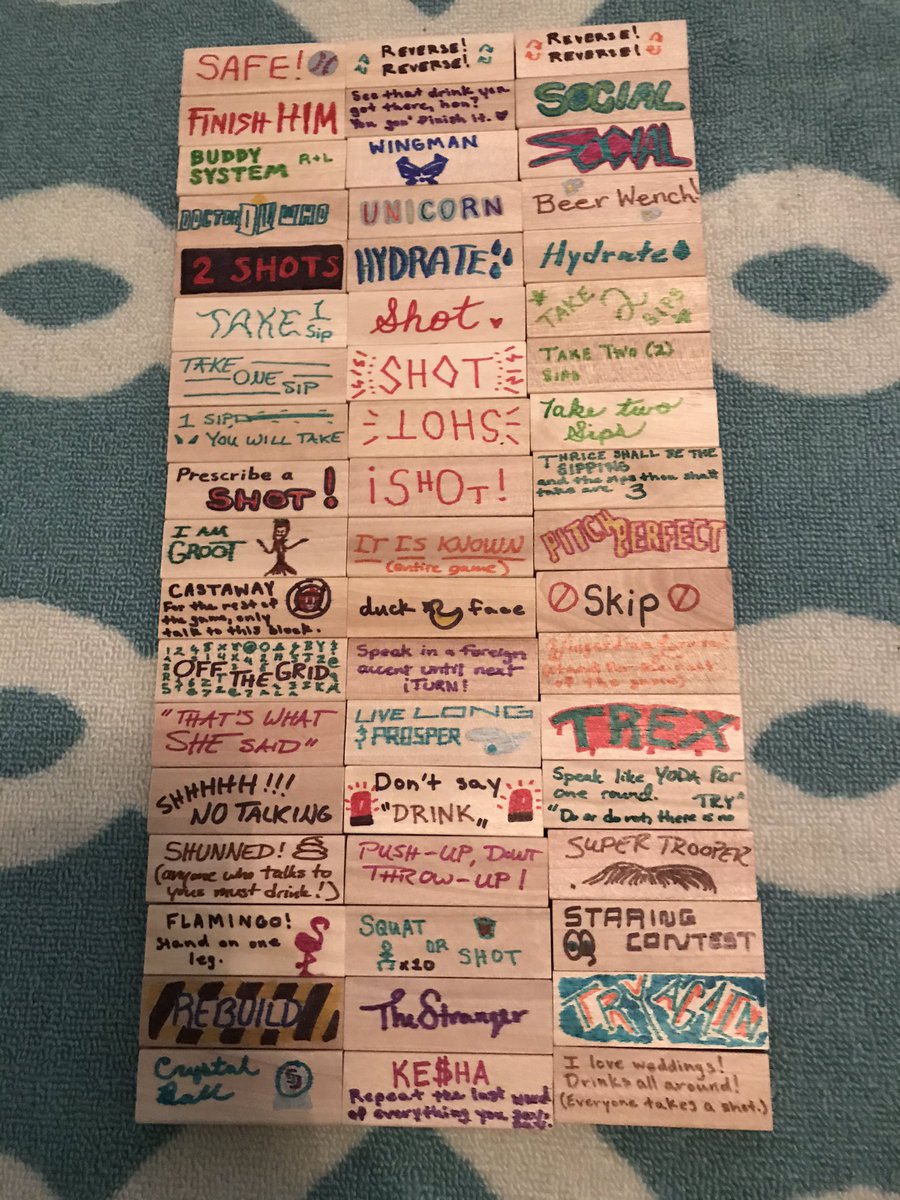 SAFE!
REVERSE!
REVERSE!
REVERSE!
REVERSE!
FINISH HIM
See that drink you
got there, hon?
You gon' finish it.
SOCIAL
BUDDY R+L
SYSTEM
WINGMAN
SOCIAL
DOCTOR DW WHO
UNICORN
Beer Wench!
2 SHOTS
HYDRATE
Hydrate
TAKE 1
Sip
Shot
TAKE 2 SIPS
TAKE
ONE
SIP
SHOT
TAKE TWO (2)
SIPS
1 SIP
YOU WILL TAKE
SHOT
Take two
Sips
Prescribe a
SHOT!
¡SHOT!
THRICE SHALL BE THE
SIPPING
and the sips thou shalt
take are 3
I AM
GROOT
IT IS KNOWN
(entire game)
PITCH PERFECT
CASTAWAY
For the rest of
the game, only
talk to this block.
duck face
Skip
OFF THE GRID
Speak in a foreign
accent until next
¡TURN!
of the game)
"THAT'S WHAT
SHE SAID"
LIVE LONG
& PROSPER
TREX
SHHHHH!!!
NO TALKING
Don't say
"DRINK"
Speak like YODA FOR
one round. TRY"
"Do or do not, there is no
SHUNNED!
(anyone who talks to
you must drink!)
PUSH-UP, DON'T
THROW-UP!
SUPER TROOPER
FLAMINGO!
Stand on one
leg.
SQUAT
OR
x10 SHOT
STARING
CONTEST
REBUILD
The Stranger
TRY AGAIN
Crystal
Ball
KE$HA
Repeat the last word
of everything you
I love weddings!
Drinks all around!
(Everyone takes a shot.)